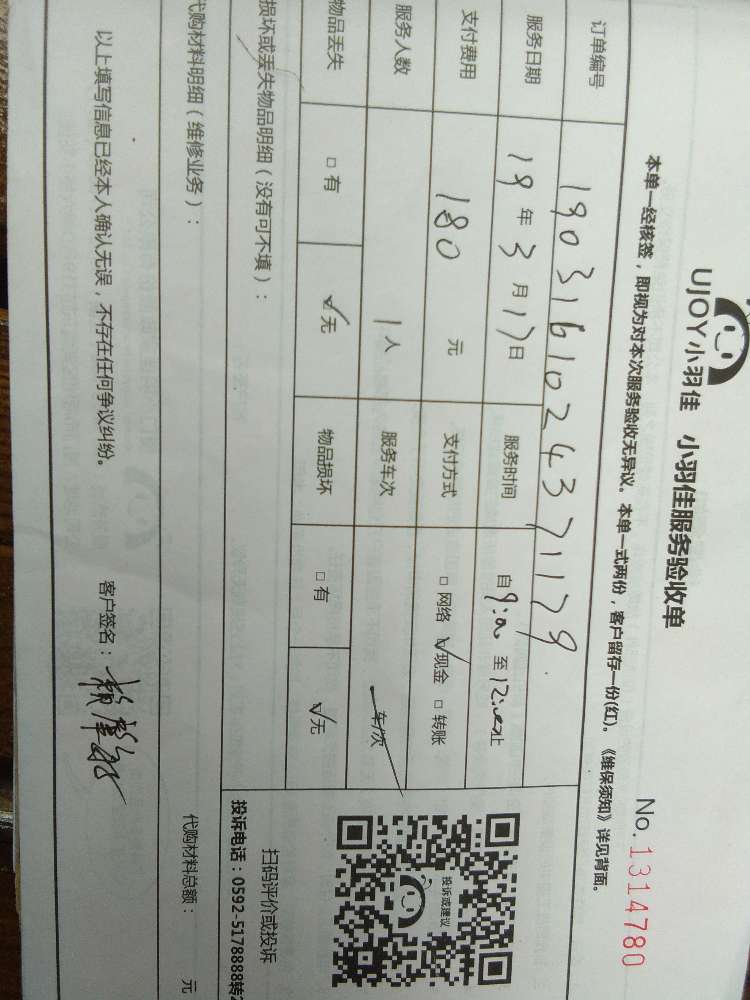 UJOY小羽佳 小羽佳服务验收单
No.1314780
本单一经核签，即视为对本次服务验收无异议。本单一式两份，客户留存一份(红)。《维保须知》详见背面。
订单编号 1903161024371179
服务日期 19年3月17日 服务时间 自9:00至12:00止
支付费用 180元 支付方式 □网络 ☑现金 □转账
服务人数 1人 服务车次 车/次
物品丢失 □有 ☑无 物品损坏 □有 ☑无
投诉或建议
损坏或丢失物品明细（没有可不填）：
扫码评价或投诉
投诉电话：0592-5178888转2
代购材料明细（维修业务）： 代购材料总额： 元
以上填写信息已经本人确认无误，不存在任何争议纠纷。 客户签名：